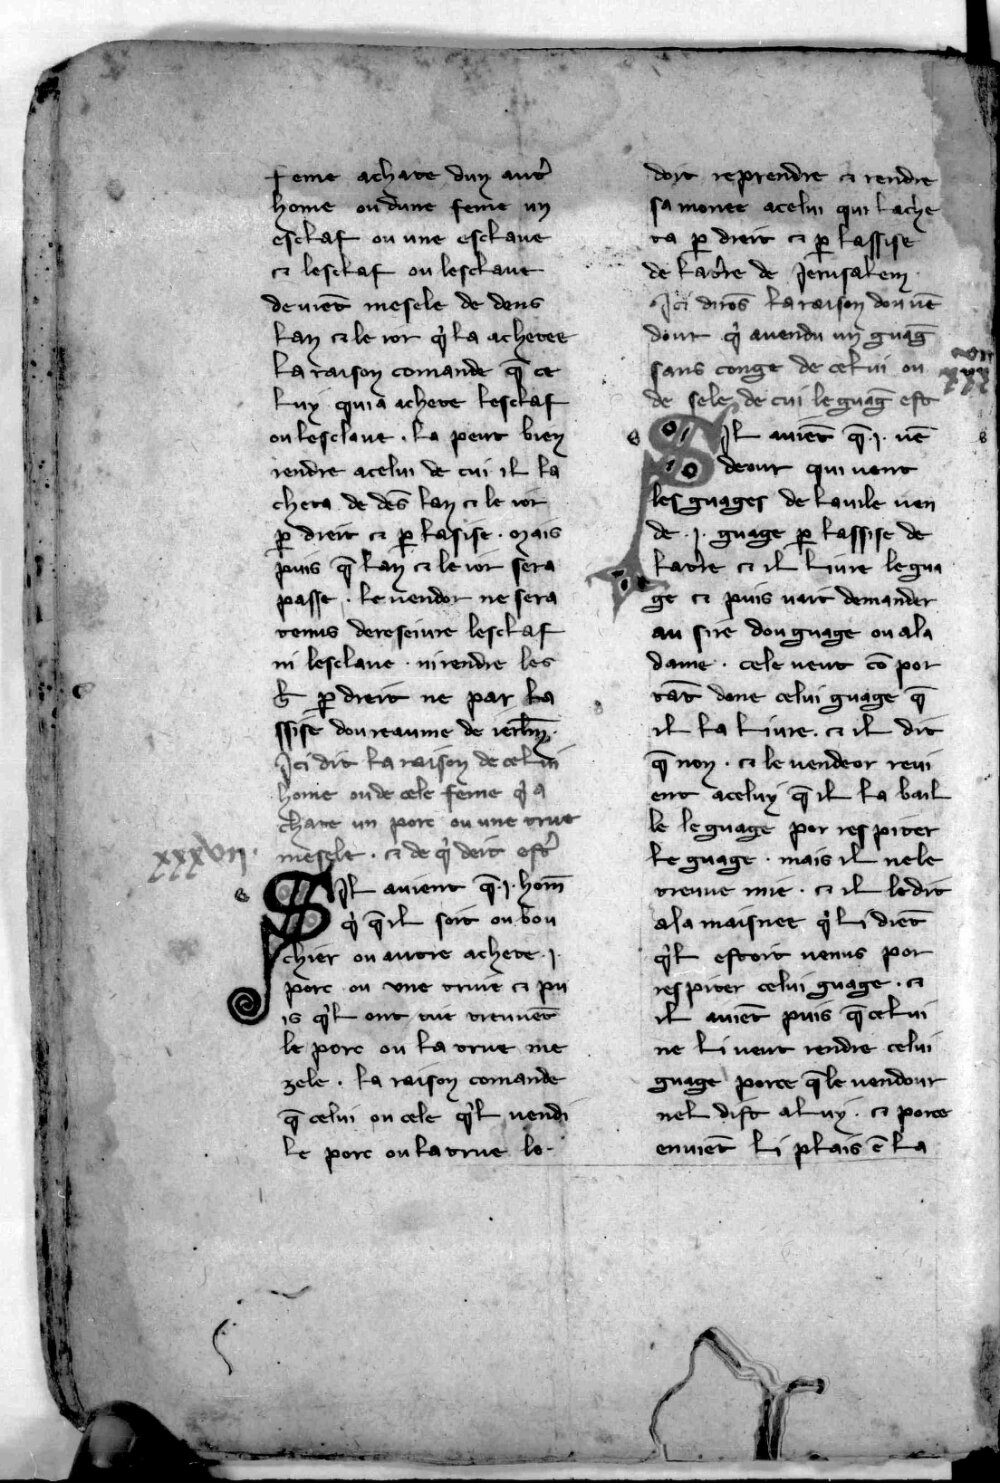 feme achate dun aut̃
home ou dune feme un
esclaf ou une esclave
⁊ lesclaf ou lesclave
devient̄ mesele de dens
lan ⁊ le ior q̇ la achetee
la raison comande q̄ ce
luy qui a achete lesclaf
ou lesclave . la peut bien
rendre a celui de cui il la
cheta de dēs lan ⁊ le ior
ꝑ dreit ⁊ ꝑ lasise . mais
puis q̄ lan ⁊ le ior sera
passe . le vendor ne sera
tenus de reseivre lesclaf
ni lesclave . ni rendre les
ꝑ dreit ne par la
ssise dou reaume de ierlm̄ .
Ici dit la raison de celui
home ou de cele feme q̇ a
chate un porc ou une true
mesele . ⁊ de q̇ deit estr̃
xxxvii .
Sil avient q̄ .i. hom̄
q̇ q̄ il soit ou bou
chier ou autre achete .i.
porc ou une truie ⁊ pu
is q̇l ont tue trevuēt
le porc ou la true me
zele . la raison comande
q̄ celui ou cele q̇l vendi
le porc ou la true lo .
doit reprendre ⁊ rendre
sa monee a celui qui lache
ta ꝑ dreit ⁊ ꝑ lassise
de labr̃e de Jerusalem .
Ici dirōs la raison dou vē
dour q̇ a vendu un guaḡ
sans conge de celui ou
de sele de cui le guaḡ est
Sil aviēt q̄ .i. vē
deour qui vent
les guages de la vile ven
de .i. guage ꝑ lassise de
labr̃e ⁊ il livre le gua
ge ⁊ puis vait demander
au sire dou guage ou a la
dame . cele veut cō por
tāt done celui guage q̄
il la livre . ⁊ il dit
q̄ non . ⁊ le vendeor revi
ent a celuy q̄ il la bail
le le guage por respiter
le guage . mais il ne le
treuve mie . ⁊ il lo dit
a la maisnee q̇ li diēt
q̇l estoit venus por
respiter celui guage . ⁊
il aviēt puis q̄ celui
ne li veut rendre celui
guage porce q̄ le vendour
nel dist a luy . ⁊ porce
en viēt li plais ē la